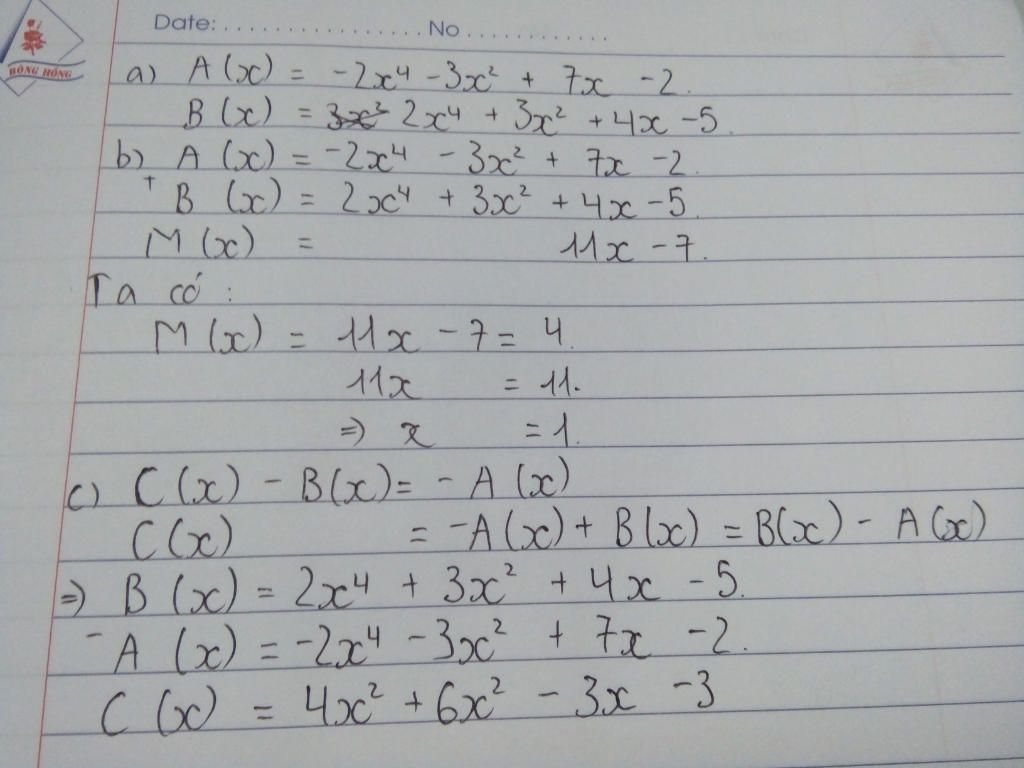 BÔNG HỒNG
Date: ................. No ..............
a) A(x) = -2x⁴ - 3x² + 7x - 2.
B(x) = 3x² 2x⁴ + 3x² + 4x - 5.
b) A(x) = -2x⁴ - 3x² + 7x - 2.
+ B(x) = 2x⁴ + 3x² + 4x - 5.
M(x) = 11x - 7.
Ta có :
M(x) = 11x - 7 = 4.
11x = 11.
⇒ x = 1.
c) C(x) - B(x) = - A(x)
C(x) = -A(x) + B(x) = B(x) - A(x)
⇒ B(x) = 2x⁴ + 3x² + 4x - 5.
- A(x) = -2x⁴ - 3x² + 7x - 2.
C(x) = 4x² + 6x² - 3x - 3